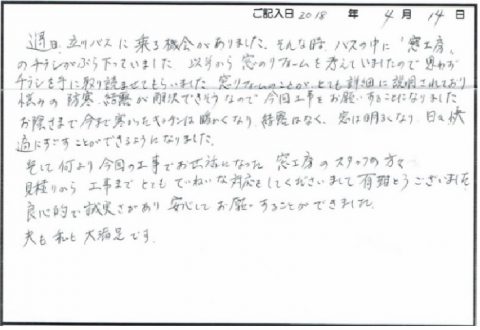 ご記入日 2018 年 4 月 14 日
過日、立川バスに乗る機会がありました。そんな時 バスの中に「窓工房」
のチラシがぶら下っていました 以前から 窓のリフォームを考えていましたので思わず
チラシを手に取り読ませてもらいました 窓リフォームのことが、とても詳細に説明されており
悩みの 防寒、結露が解決できそうなので今回工事をお願いすることになりました
お陰さまで今まで寒かったキッチンは暖かくなり 結露はなく、窓は明るくなり 日々快
適にすごすことができるようになりました。
そして何より今回の工事でお世話になった 窓工房のスタッフの方々
見積りから 工事まで とても ていねいな対応をしてくださいまして 有難とうございました
良心的で誠実さがあり 安心してお願いすることができました。
夫も私も 大満足です。